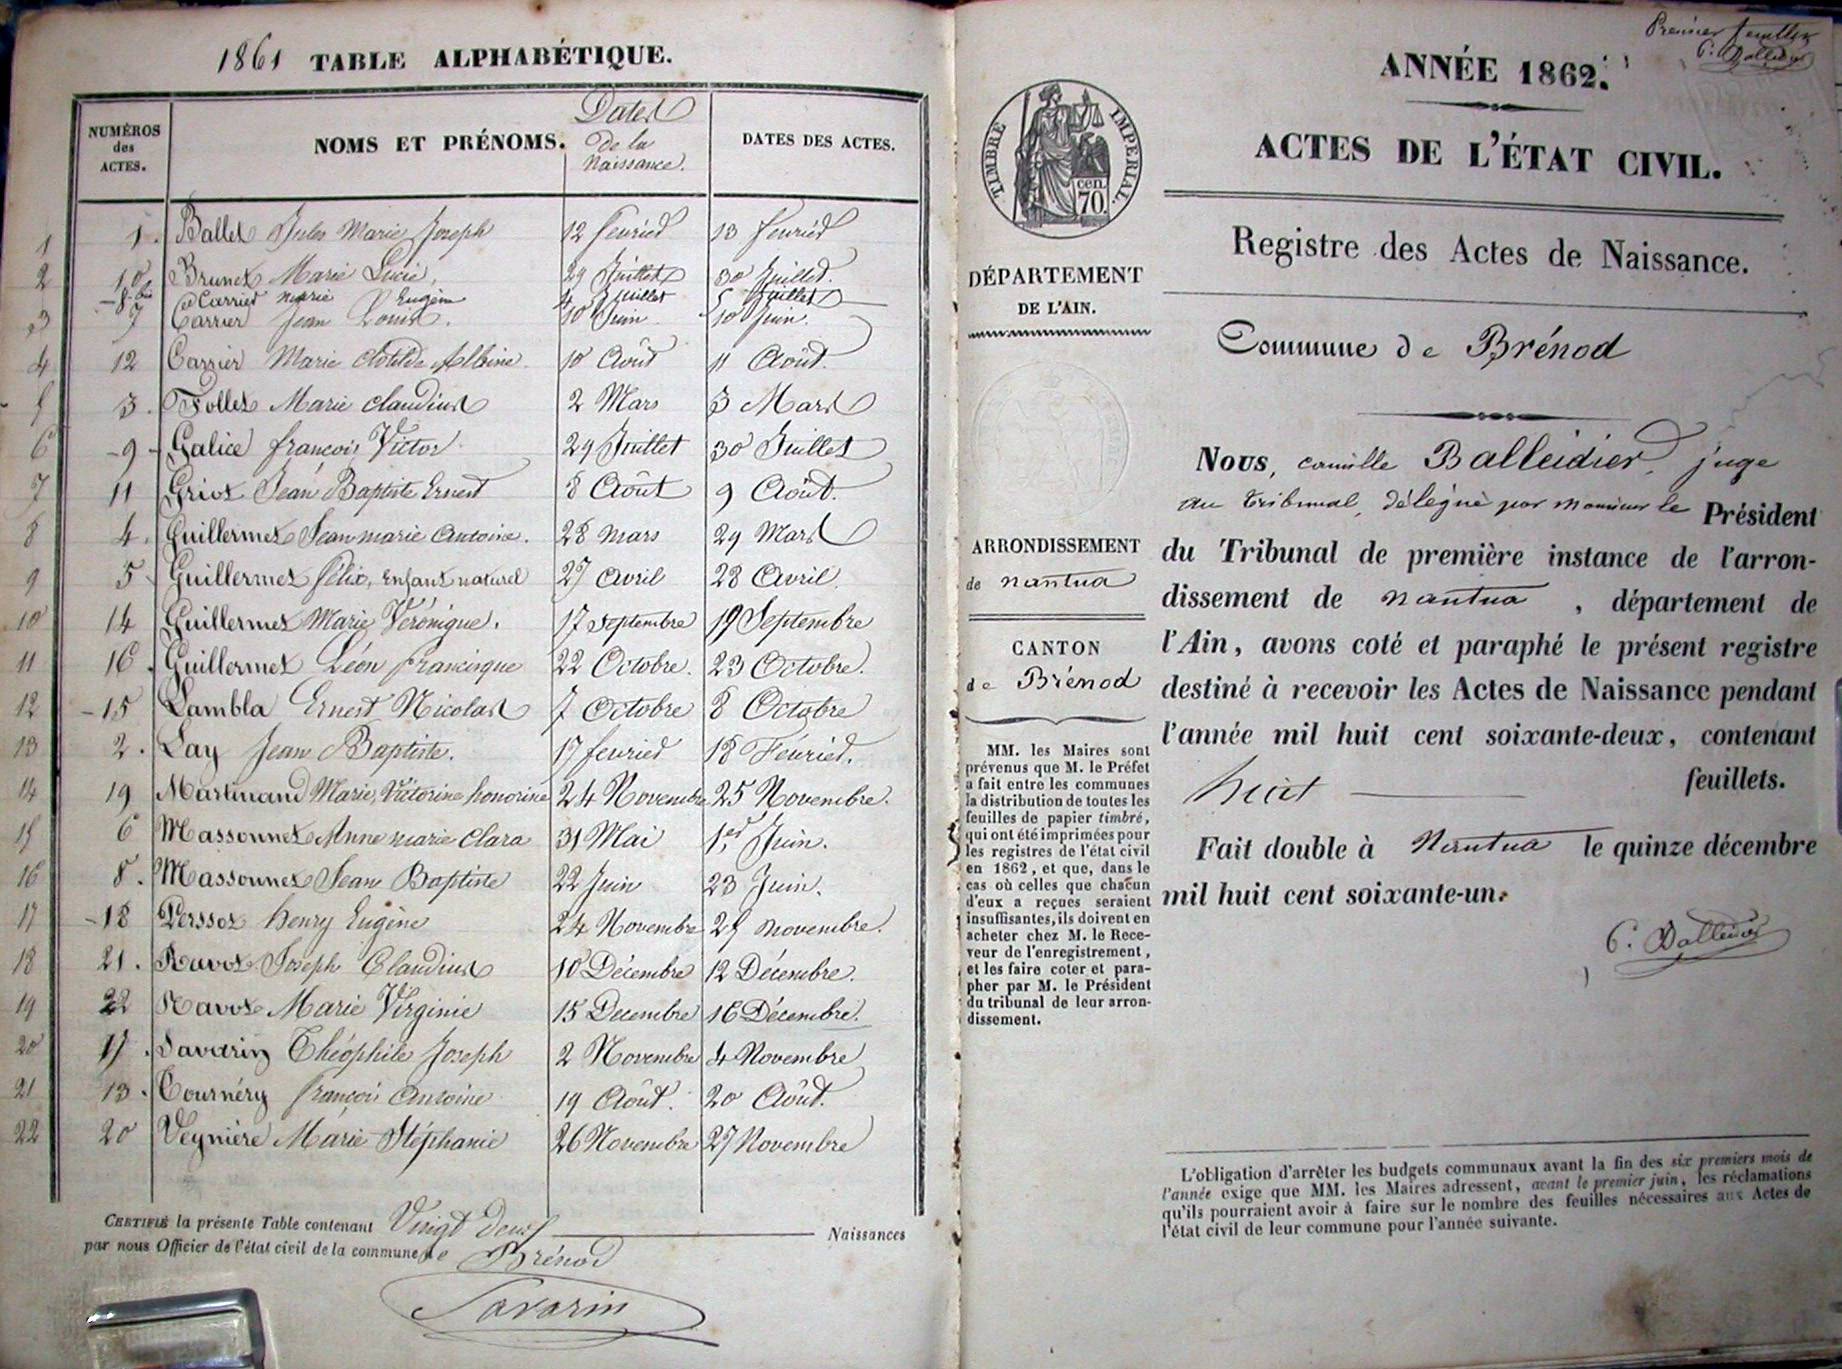 1861 TABLE ALPHABÉTIQUE.
NUMÉROS des ACTES. NOMS ET PRÉNOMS. Dates de la Naissance. DATES DES ACTES.
1 1. Ballet Jules Marie Joseph 12 feurier 13 feurier
2 10 Brunet Marie Lucie, 29 Juillet 30 Juillet.
8 bis Carrier marie Eugénie 4 Juillet 5 Juillet
3 7 Carrier Jean Louis. 10 Juin 10 Juin.
4 12 Carrier Marie Clotilde Albine. 10 Août 11 Août.
5 3. Follet Marie claudius 2 Mars 3 Mars
6 9 Galice françois Victor 29 Juillet 30 Juillet
7 11 Griot Jean Baptiste Ernest 8 Août 9 Août.
8 4. Guillermet Jean marie Antoine. 28 mars 29 Mars
9 5 Guillermet félix, Enfant naturel 27 Avril 28 Avril.
10 14 Guillermet Marie Véronique. 17 septembre 19 Septembre
11 16. Guillermet Léon francisque 22 Octobre. 23 Octobre.
12 15 Lambla Ernest Nicolas 7 Octobre 8 Octobre
13 2. Lay Jean Baptiste. 17 feurier 18 Feurier.
14 19 Martinand Marie, Victorine honorine 24 Novembre 25 Novembre.
15 6 Massonnet Anne marie Clara 31 Mai 1er Juin.
16 8. Massonnet Jean Baptiste 22 Juin 23 Juin.
17 18 Perssot henry Eugène 24 Novembre 25 novembre.
18 21. Ravot Joseph Claudius 10 Décembre 12 Décembre.
19 22 Ravot Marie Virginie 15 Decembre 16 Décembre.
20 17. Savarin Théophile Joseph 2 Novembre 4 Novembre
21 13. Tournéry françois Antoine 19 Août. 20 Août.
22 20 Veyniére Marie Stéphanie 26 Novembre 27 Novembre
CERTIFIÉ la présente Table contenant Vingt deux Naissances
par nous Officier de l'état civil de la commune de Brénod
Savarin
Premier feuillet
C. Balleidier
ANNÉE 1862.
ACTES DE L'ÉTAT CIVIL.
TIMBRE IMPERIAL.
cen. 70.
Registre des Actes de Naissance.
DÉPARTEMENT
DE L'AIN.
Commune de Brénod
ARRONDISSEMENT
de nantua
CANTON
de Brénod
MM. les Maires sont
prévenus que M. le Préfet
a fait entre les communes
la distribution de toutes les
feuilles de papier timbré,
qui ont été imprimées pour
les registres de l'état civil
en 1862, et que, dans le
cas où celles que chacun
d'eux a reçues seraient
insuffisantes, ils doivent en
acheter chez M. le Rece-
veur de l'enregistrement,
et les faire coter et para-
pher par M. le Président
du tribunal de leur arron-
dissement.
Nous, camille Balleidier, juge
au tribunal, délégué par monsieur le Président
du Tribunal de première instance de l'arron-
dissement de nantua, département de
l'Ain, avons coté et paraphé le présent registre
destiné à recevoir les Actes de Naissance pendant
l'année mil huit cent soixante-deux, contenant
huit feuillets.
Fait double à Nantua le quinze décembre
mil huit cent soixante-un.
C. Balleidier
L'obligation d'arrêter les budgets communaux avant la fin des six premiers mois de
l'année exige que MM. les Maires adressent, avant le premier juin, les réclamations
qu'ils pourraient avoir à faire sur le nombre des feuilles nécessaires aux Actes de
l'état civil de leur commune pour l'année suivante.